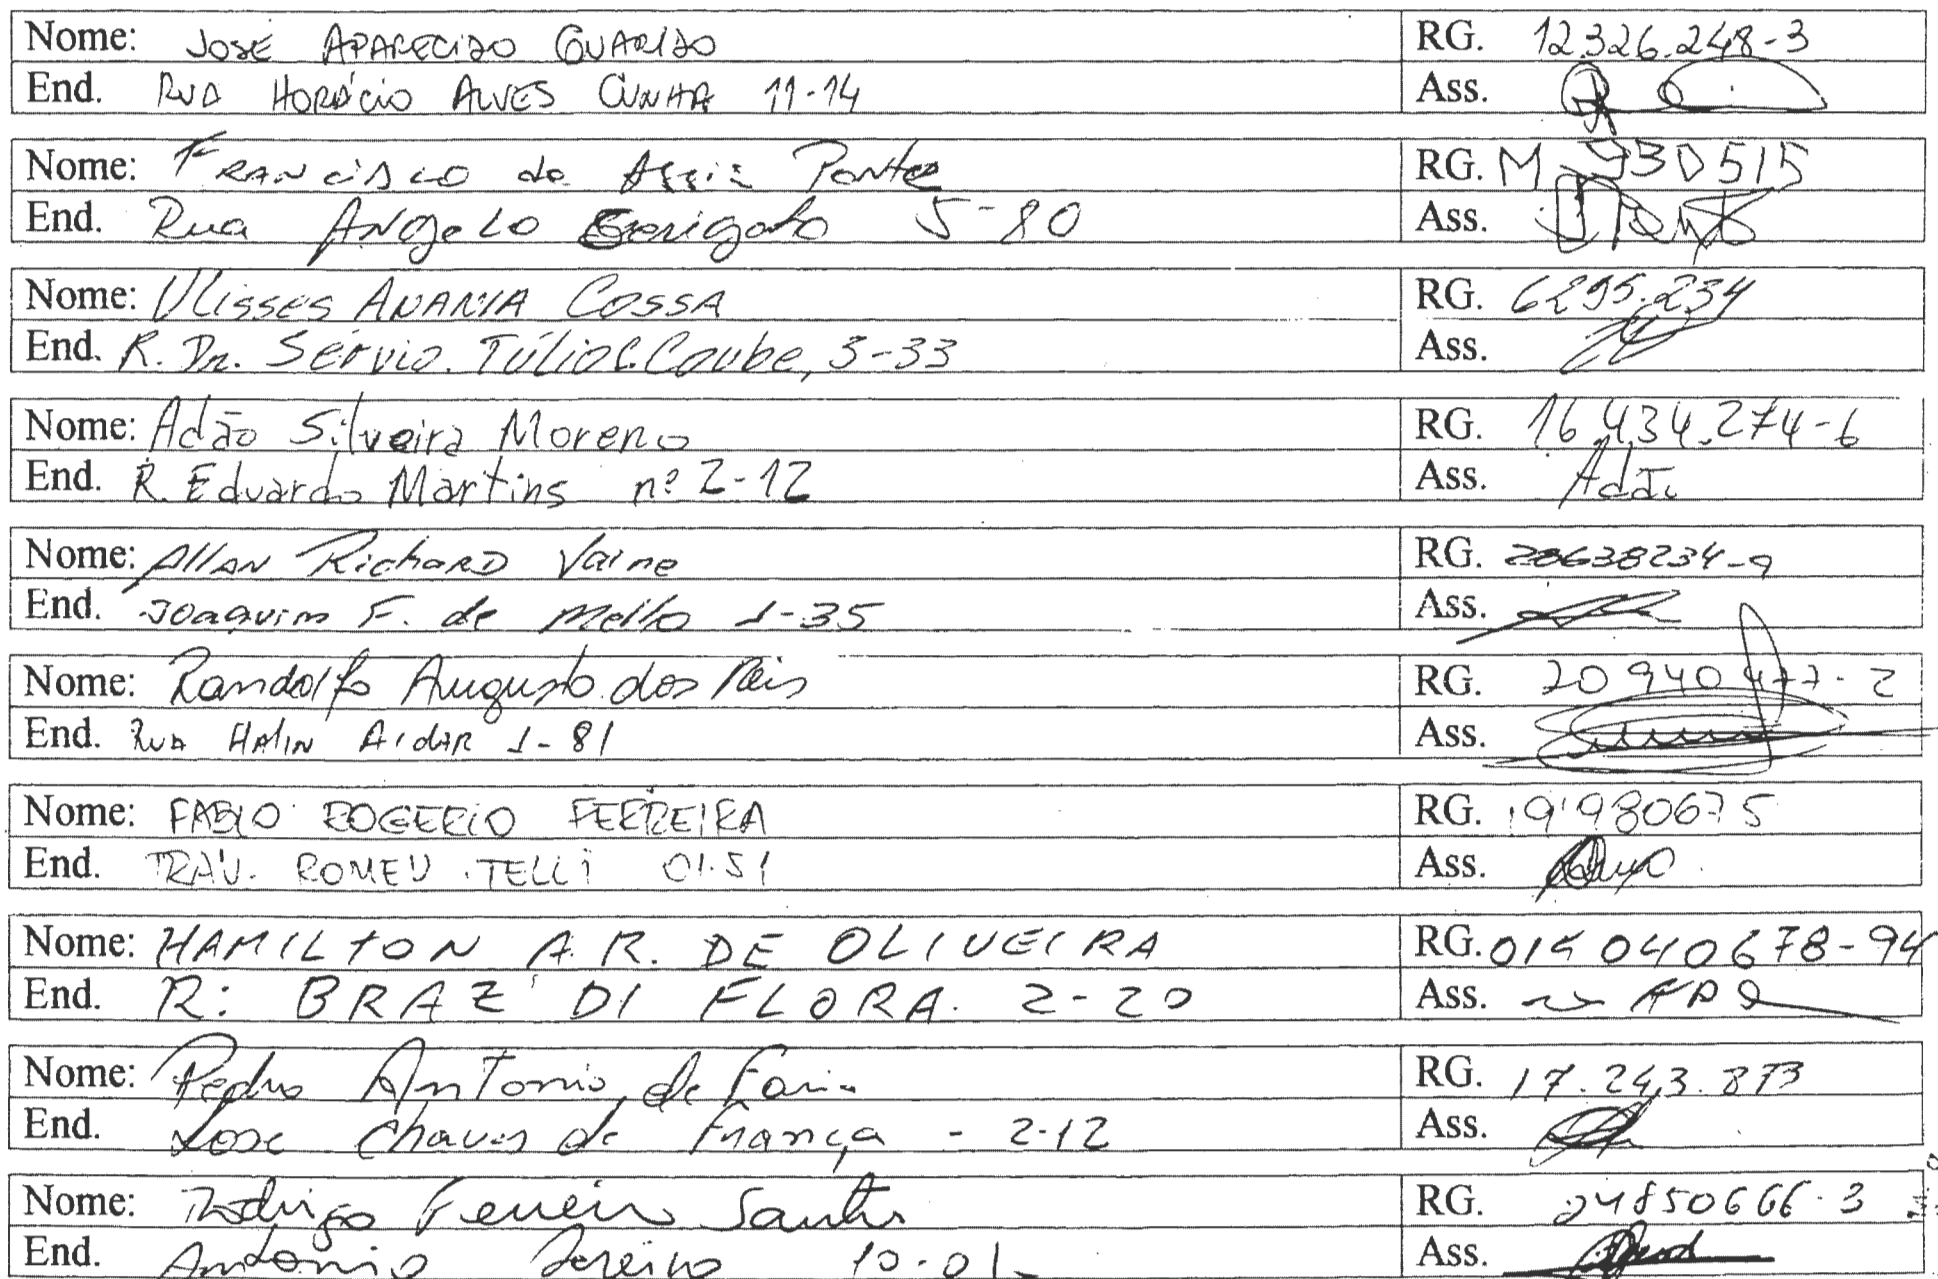 Nome: JOSÉ APARECIDO GUARIDO RG. 12.326.248-3
End. RUA HORÁCIO ALVES CUNHA 11-14 Ass.
Nome: FRANCISCO de Assis Ponte RG. M 930515
End. Rua Angelo 5-80 Ass.
Nome: Ulisses ANANIA COSSA RG. 6295.234
End. R. Dr. Sérvio. Túlio C. Coube, 3-33 Ass.
Nome: Adão Silveira Moreno RG. 16.434.274-6
End. R. Eduardo Martins nº 2-12 Ass. Adão
Nome: Allan Richard Vaine RG. 28638234-9
End. Joaquim F. de Mello 1-35 Ass.
Nome: Randolfo Augusto dos Reis RG. 20940477-2
End. Rua Halin Aidar 1-81 Ass.
Nome: FABIO ROGERIO FERREIRA RG. 19980675
End. TRAV. ROMEU TELLI 01-51 Ass.
Nome: HAMILTON A.R. DE OLIVEIRA RG. 014040678-94
End. R: BRAZ DI FLORA. 2-20 Ass.
Nome: Pedro Antonio de Faria RG. 17.243.873
End. Jose Chaves de França - 2-12 Ass.
Nome: Rodrigo Ferreira Santos RG. 24850666-3
End. Antonio 10-01 Ass.